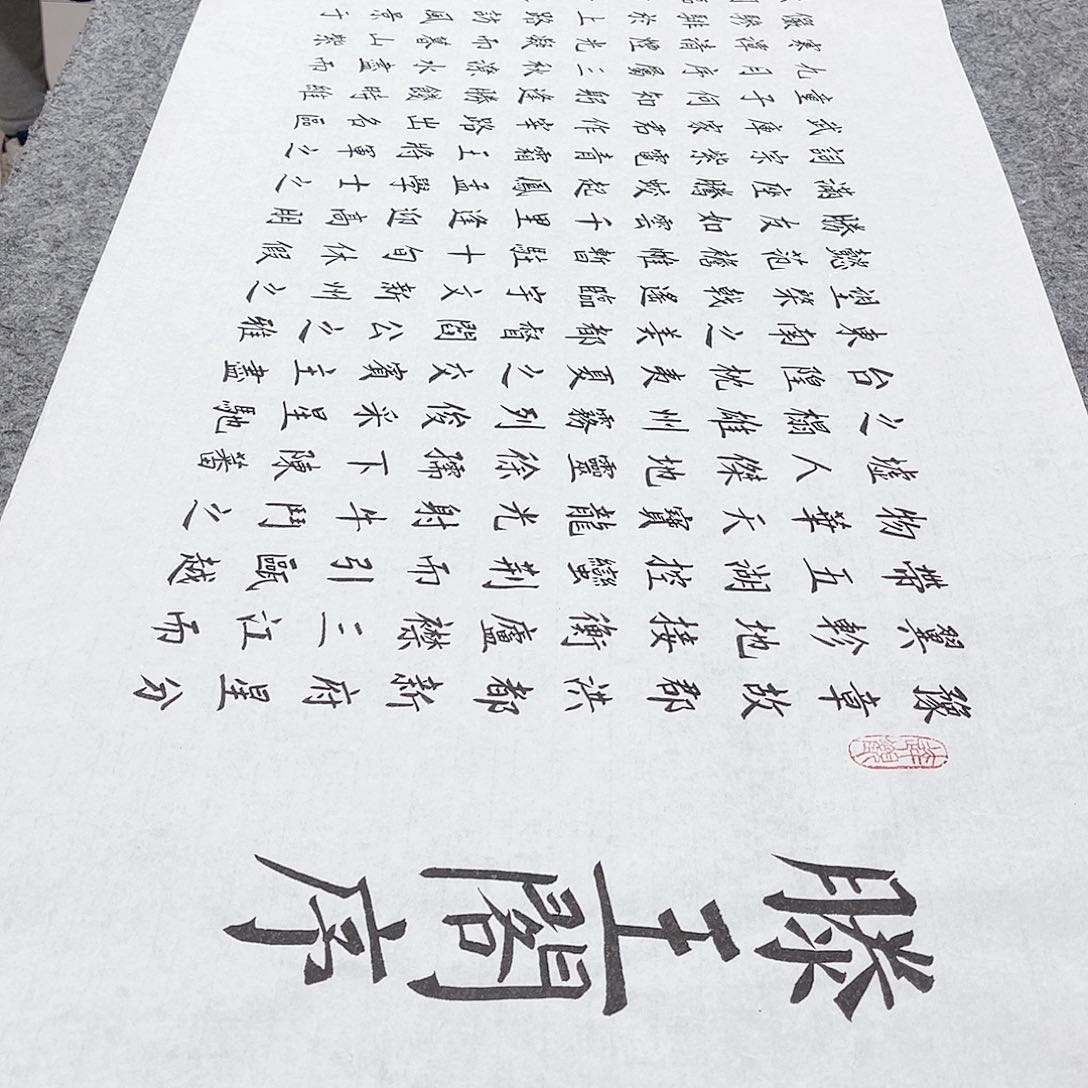 滕王閣序
豫章故郡洪都新府星分
翼軫地接衡廬襟三江而
帶五湖控蠻荊而引甌越
物華天寶龍光射牛鬥之
墟人傑地靈徐孺下陳蕃
之榻雄州霧列俊采星馳
台隍枕夷夏之交賓主盡
東南之美都督閻公之雅
望棨戟遙臨宇文新州之
懿范襜帷暫駐十旬休假
勝友如雲千里逢迎高朋
滿座騰蛟起鳳孟學士之
詞宗紫電青霜王將軍之
武庫家君作宰路出名區
童子何知躬逢勝餞時維
九月序屬三秋潦水盡而
寒潭清煙光凝而暮山紫
儼驂騑於上路訪風景于